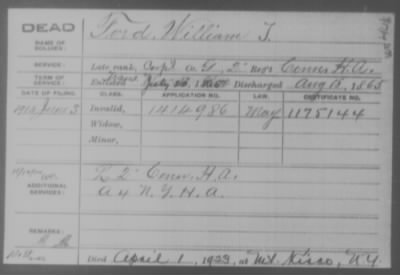 DEAD
NAME OF SOLDIER: Ford, William T.
SERVICE: Late rank, Corp'l Co. G, 2" Reg't Conn. H.A.
TERM OF SERVICE: Enlisted Discharged Aug 18, 1865
DATE OF FILING. CLASS. APPLICATION NO. LAW. CERTIFICATE NO.
June 3 Invalid, 1414986 May 1175144
Widow,
Minor,
ADDITIONAL SERVICES: K 2" Conn. H.A.
A 4 N.Y. H.A.
REMARKS:
Died April 1, 1923, at Mt. Kisco, N.Y.